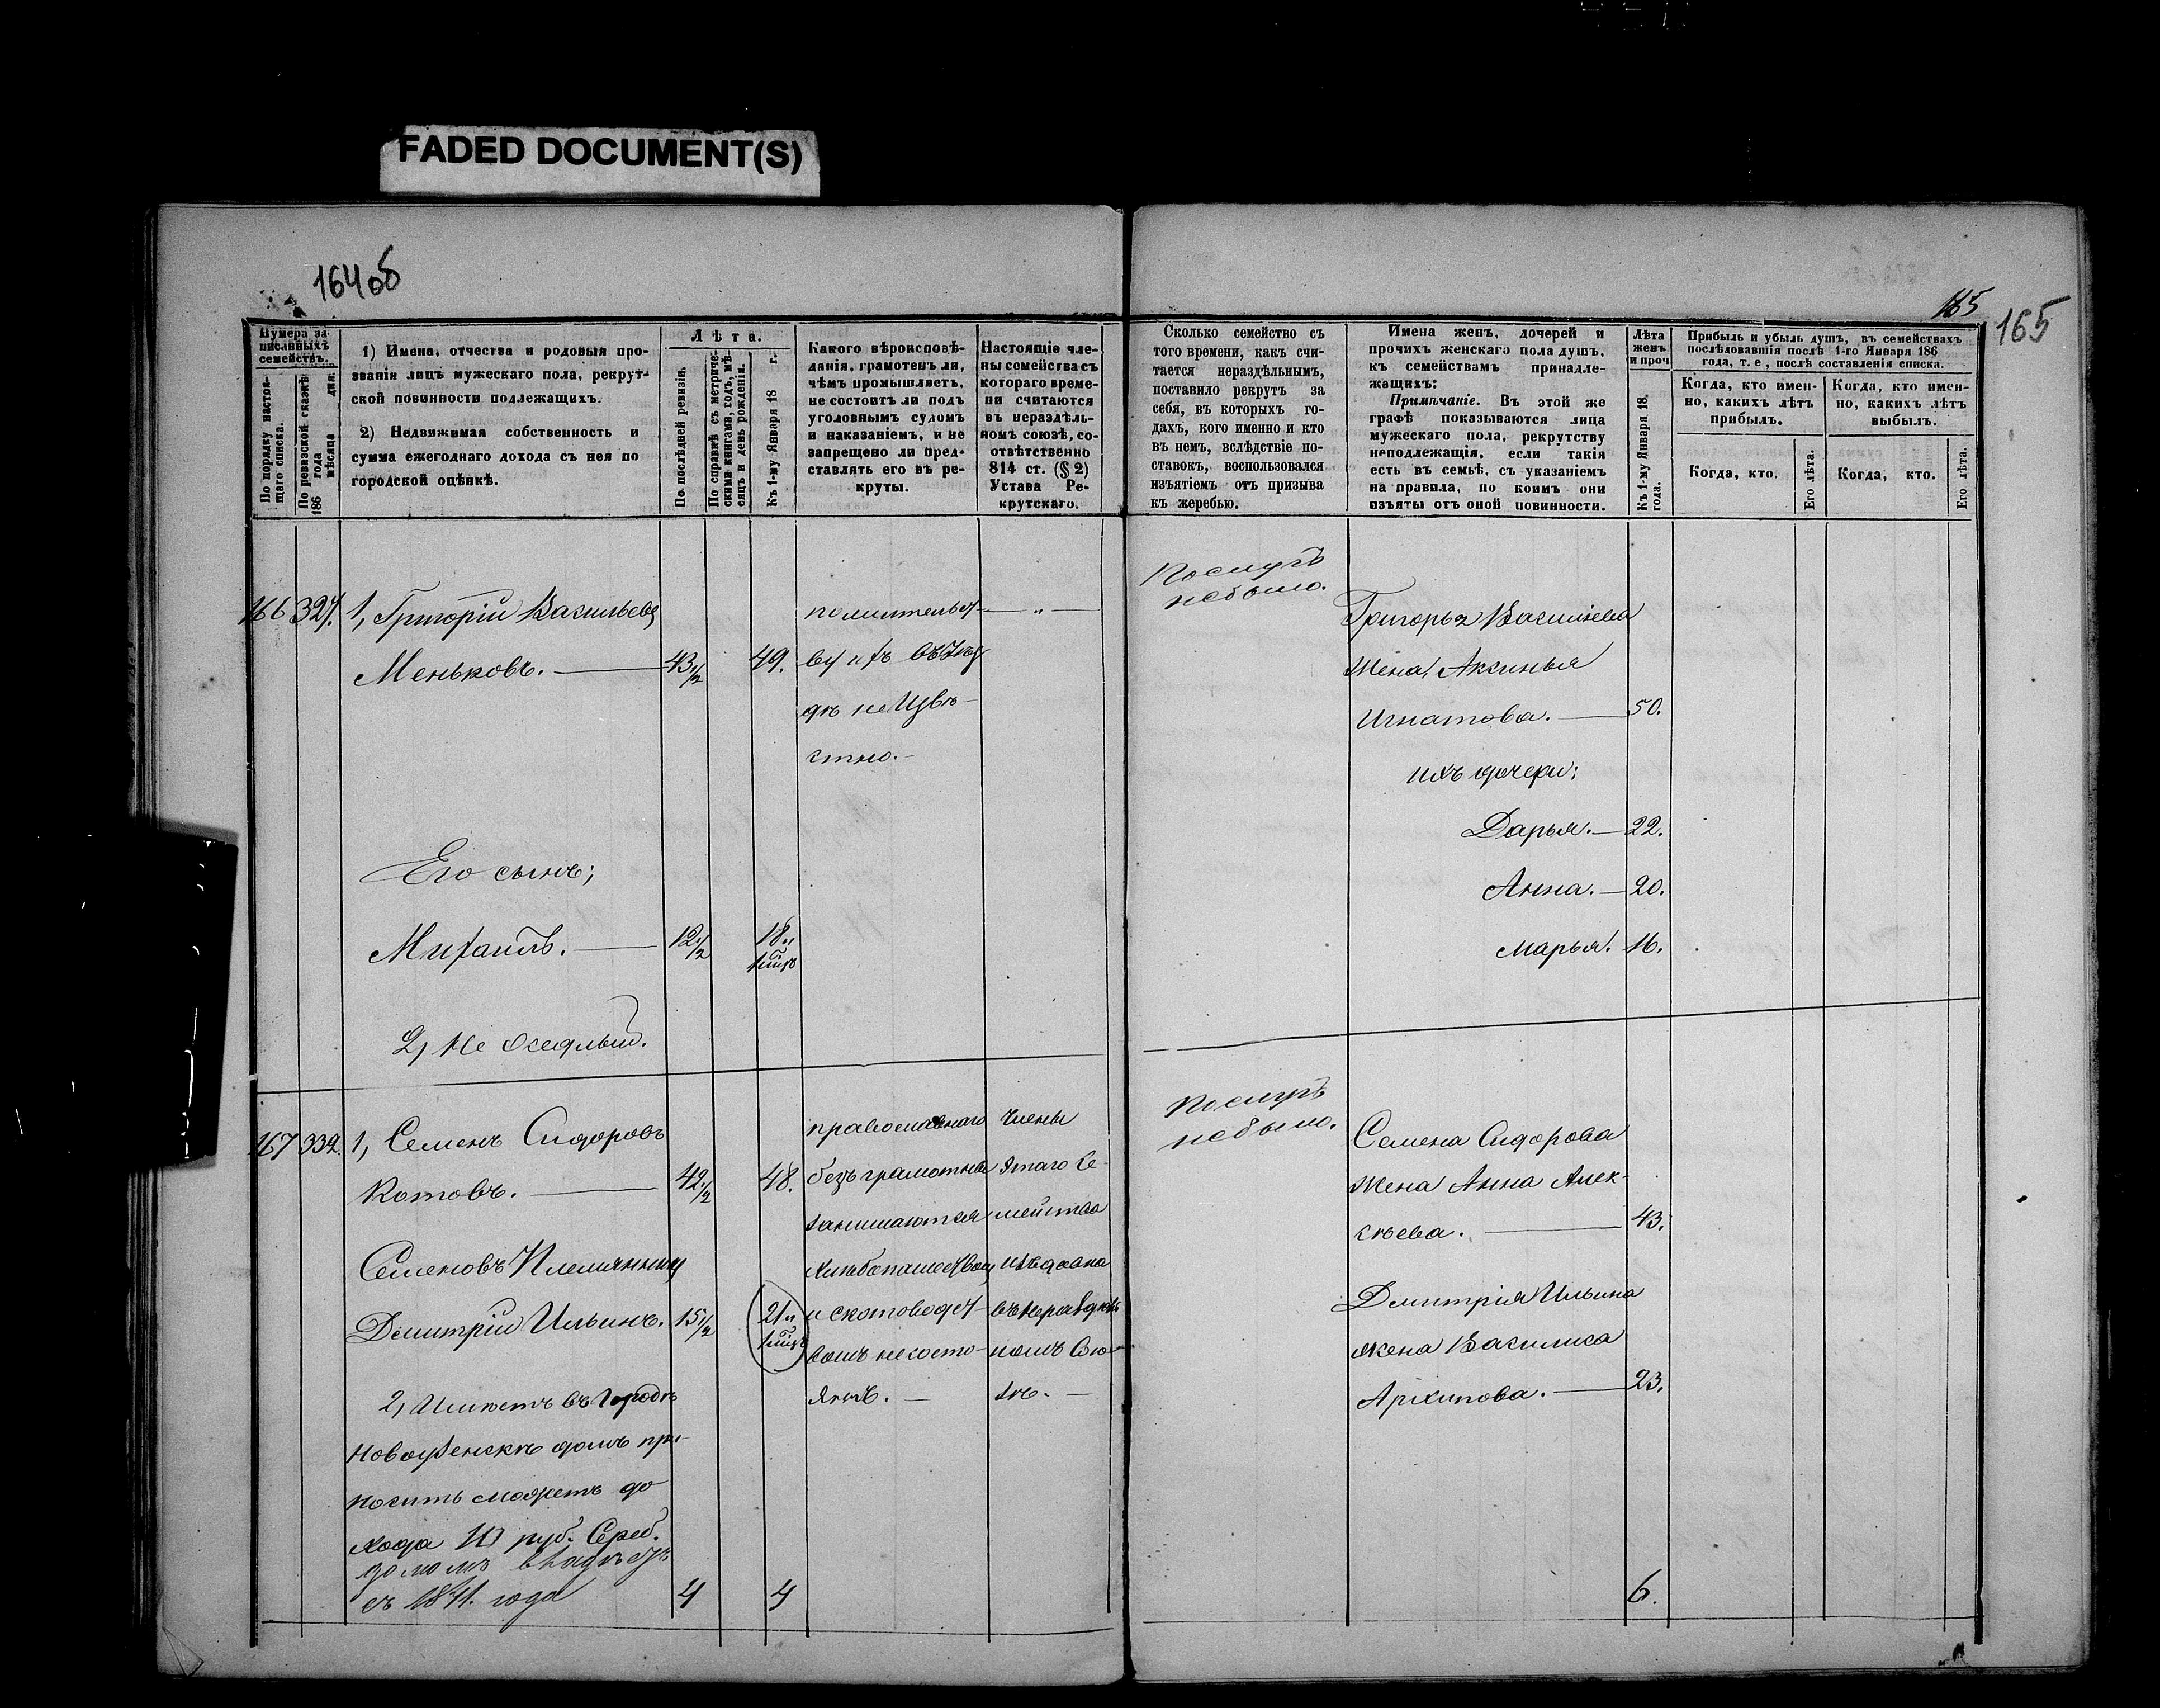 FADED DOCUMENT(S)
164об
165
165
Нумера за-
писанныхъ
семействъ.
По порядку настоя-
щаго списка.
По ревизской сказкѣ
186 года
мѣсяца дня.
1) Имена, отчества и родовыя про-
званія лицъ мужескаго пола, рекрут-
ской повинности подлежащихъ.
2) Недвижимая собственность и
сумма ежегоднаго дохода съ нея по
городской оцѣнкѣ.
Лѣта.
По послѣдней ревизіи.
По справкѣ съ метриче-
скими книгами, годъ, мѣ-
сяцъ и день рожденія.
Къ 1-му Января 18 г.
Какого вѣроисповѣ-
данія, грамотенъ ли,
чѣмъ промышляетъ,
не состоитъ ли подъ
уголовнымъ судомъ
и наказаніемъ, и не
запрещено ли пред-
ставлять его въ ре-
круты.
Настоящіе чле-
ны семейства съ
котораго време-
ни считаются
въ нераздѣль-
номъ союзѣ, со-
отвѣтственно
814 ст. (§ 2)
Устава Ре-
крутскаго.
Сколько семейство съ
того времени, какъ счи-
тается нераздѣльнымъ,
поставило рекрутъ за
себя, въ которыхъ го-
дахъ, кого именно и кто
въ немъ, вслѣдствіе по-
ставокъ, воспользовался
изъятіемъ отъ призыва
къ жеребью.
Имена женъ, дочерей и
прочихъ женскаго пола душъ,
къ семействамъ принадле-
жащихъ:
Примѣчаніе. Въ этой же
графѣ показываются лица
мужескаго пола, рекрутству
неподлежащія, если такія
есть въ семьѣ, съ указаніемъ
на правила, по коимъ они
изъяты отъ оной повинности.
Лѣта
женъ
и проч
Къ 1-му Января 18
года.
Прибыль и убыль душъ, въ семействахъ
послѣдовавшія послѣ 1-го Января 186
года, т. е, послѣ составленія списка.
Когда, кто имен-
но, какихъ лѣтъ
прибылъ.
Когда, кто имен-
но, какихъ лѣтъ
выбылъ.
Когда, кто.
Его лѣта.
Когда, кто.
Его лѣта.
166 327. 1, Григорій Васильевъ
Меньковъ. 43 1/2 49.
неизвѣ-
стно.
Его сынъ;
Михаилъ. 12 1/2 18
2, Не оседлый.
небыло.
Григорья Васильева
Жена, Аксинья
Игнатова. 50.
ихъ дочери:
Дарья. 22.
Анна. 20.
Марья. 16.
167 332. 1, Семенъ Сидоровъ
Котовъ. 42 1/2 48.
Семеновъ Племянникъ
Дмитрій Ильинъ. 15 1/2 21
2, Имѣетъ въ Городѣ
Новоузенскѣ домъ при-
носить можетъ до
хода 10 руб. Сереб.
домомъ владѣетъ
съ 1841. года
4 4
православнаго
безграмотны
занимаются
хлебопашеством
и скотоводст-
вомъ несосто-
ялъ.
Члены
этаго Се-
мейства
издавна
въ нераздѣль
номъ Сою-
зѣ.
небыло.
Семена Сидорова
Жена Анна Алек-
сѣева. 43.
Дмитрія Ильина
жена Василиса
Архипова. 23.
6.